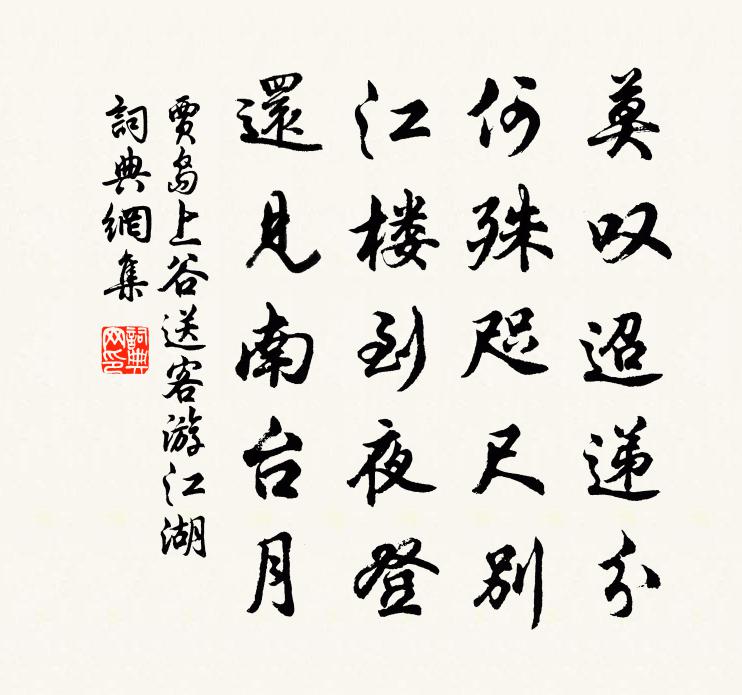 莫叹迢递分
何殊咫尺别
江楼到夜登
還見南台月
賈島上谷送客游江湖
詞典網集
詞典网印